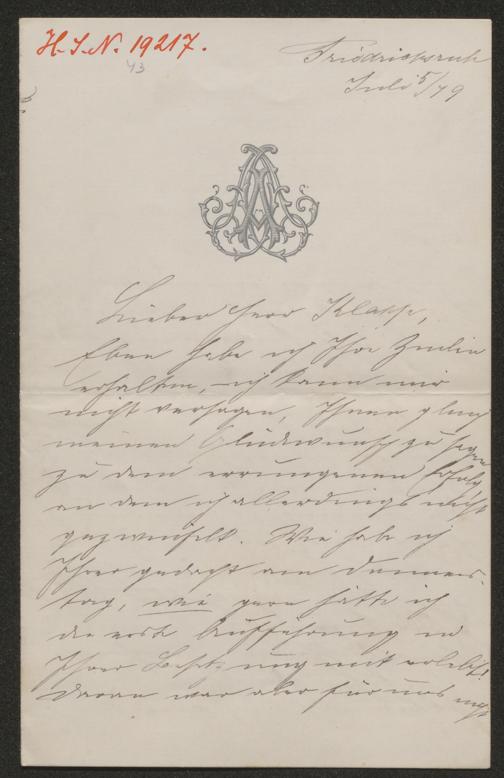 H.I.N. 19217.
43
Friedrichsruh
Juli 5/79
Lieber Herr Klasse,
Eben habe ich Ihre Zeilen
erhalten, ich kann mir
nicht versagen, Ihnen gleich
meinen Glückwunsch zu sagen
zu dem errungenen Erfolg
an dem ich allerdings nicht
gezweifelt. Wie habe ich
Ihrer gedacht am Donners-
tag, wie gern hätte ich
die erste Aufführung in
Ihrer mit erlebt!
daran war aber für uns nicht